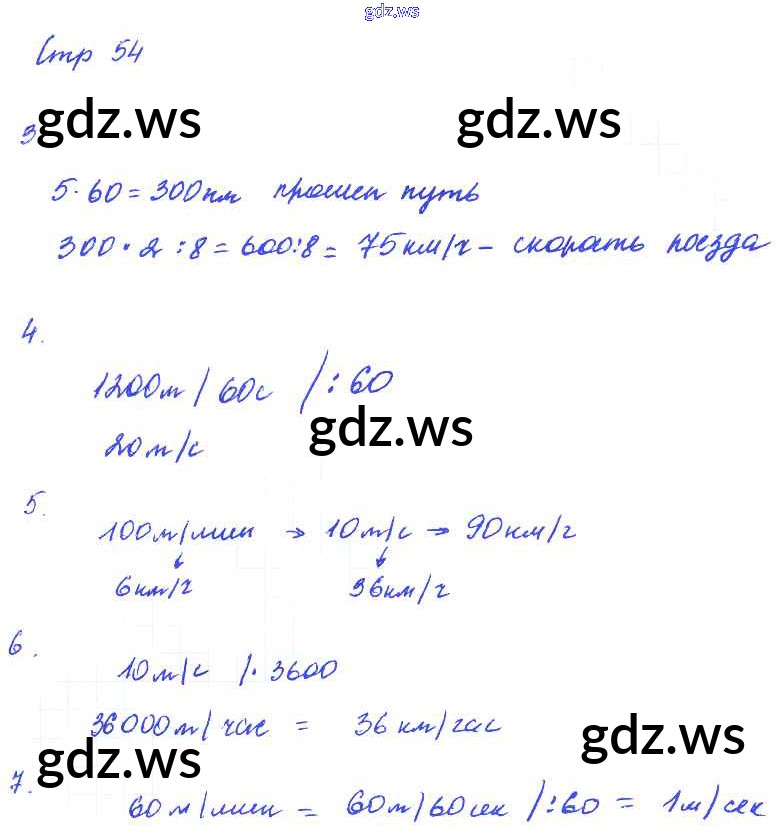 gdz.ws
Стр 54
gdz.ws gdz.ws
3
5·60=300км прошел путь
300·2:8=600:8=75км/ч – скорость поезда
4.
1200м/60с /:60
gdz.ws
20м/с
5.
100м/мин → 10м/с → 90км/г
↓ ↓
6км/г 36км/г
6.
10м/с /·3600
36000м/час = 36км/час
gdz.ws gdz.ws
7.
60м/мин = 60м/60сек /:60 = 1м/сек